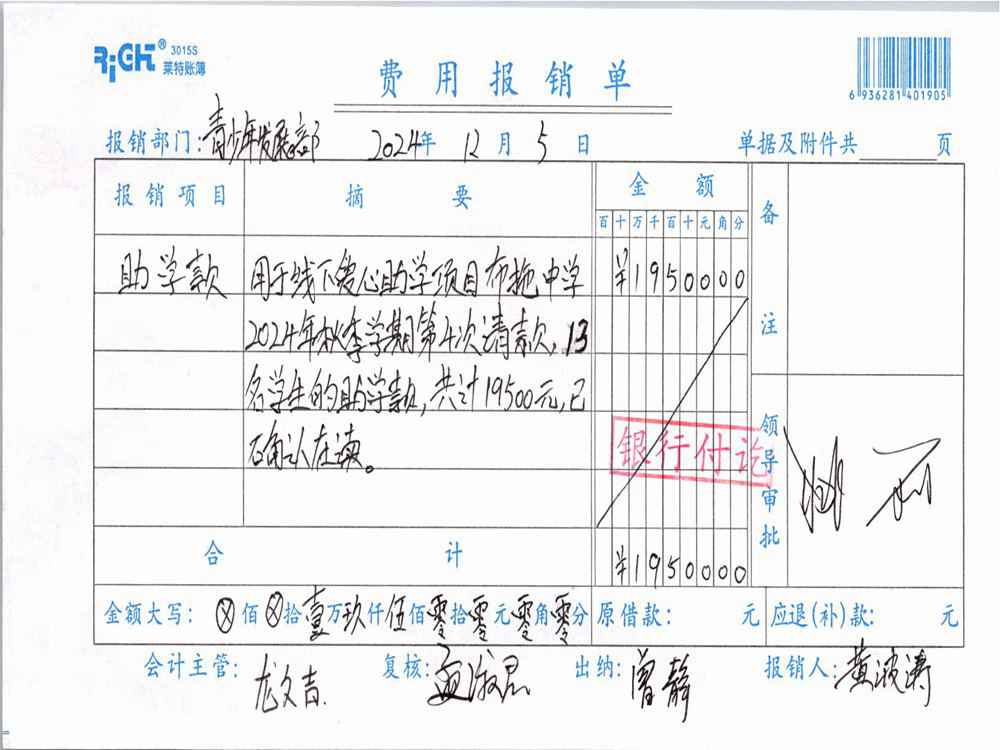 RiGHT® 3015S
莱特账簿
费用报销单
6 936281 401905
报销部门:青少年发展部 2024年 12月 5日 单据及附件共 页
报销项目 摘要 金额 备注
百十万千百十元角分
助学款 用于线下爱心助学项目布拖中学 ¥1950000
2024年秋季学期第4次请款,13
名学生的助学款,共计19500元,已
确认在读。
银行付讫
领导审批
合计 ¥1950000
金额大写: ⊗佰⊗拾壹万玖仟伍佰零拾零元零角零分 原借款: 元 应退(补)款: 元
会计主管: 龙文吉 复核: 孟淑君 出纳: 曾静 报销人: 黄波涛